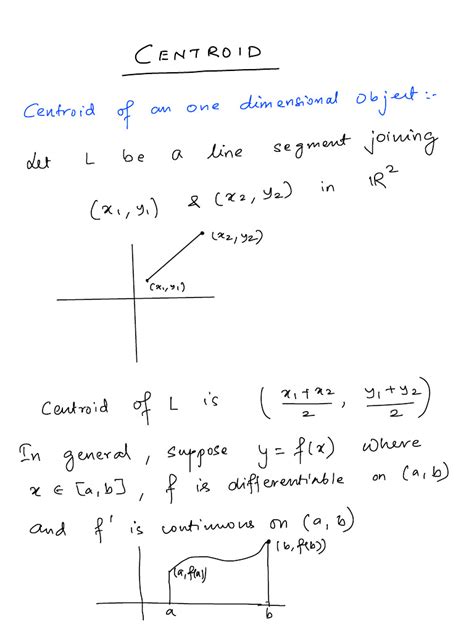 CENTROID
Centroid of an one dimensional object:-
Let L be a line segment joining
(x₁, y₁) & (x₂, y₂) in ℝ²
(x₂, y₂)
(x₁, y₁)
Centroid of L is ( x₁+x₂/2 , y₁+y₂/2 )
In general, suppose y = f(x) where
x ∈ [a, b], f is differentiable on (a, b)
and f' is continuous on (a, b)
(b, f(b))
(a, f(a))
a b